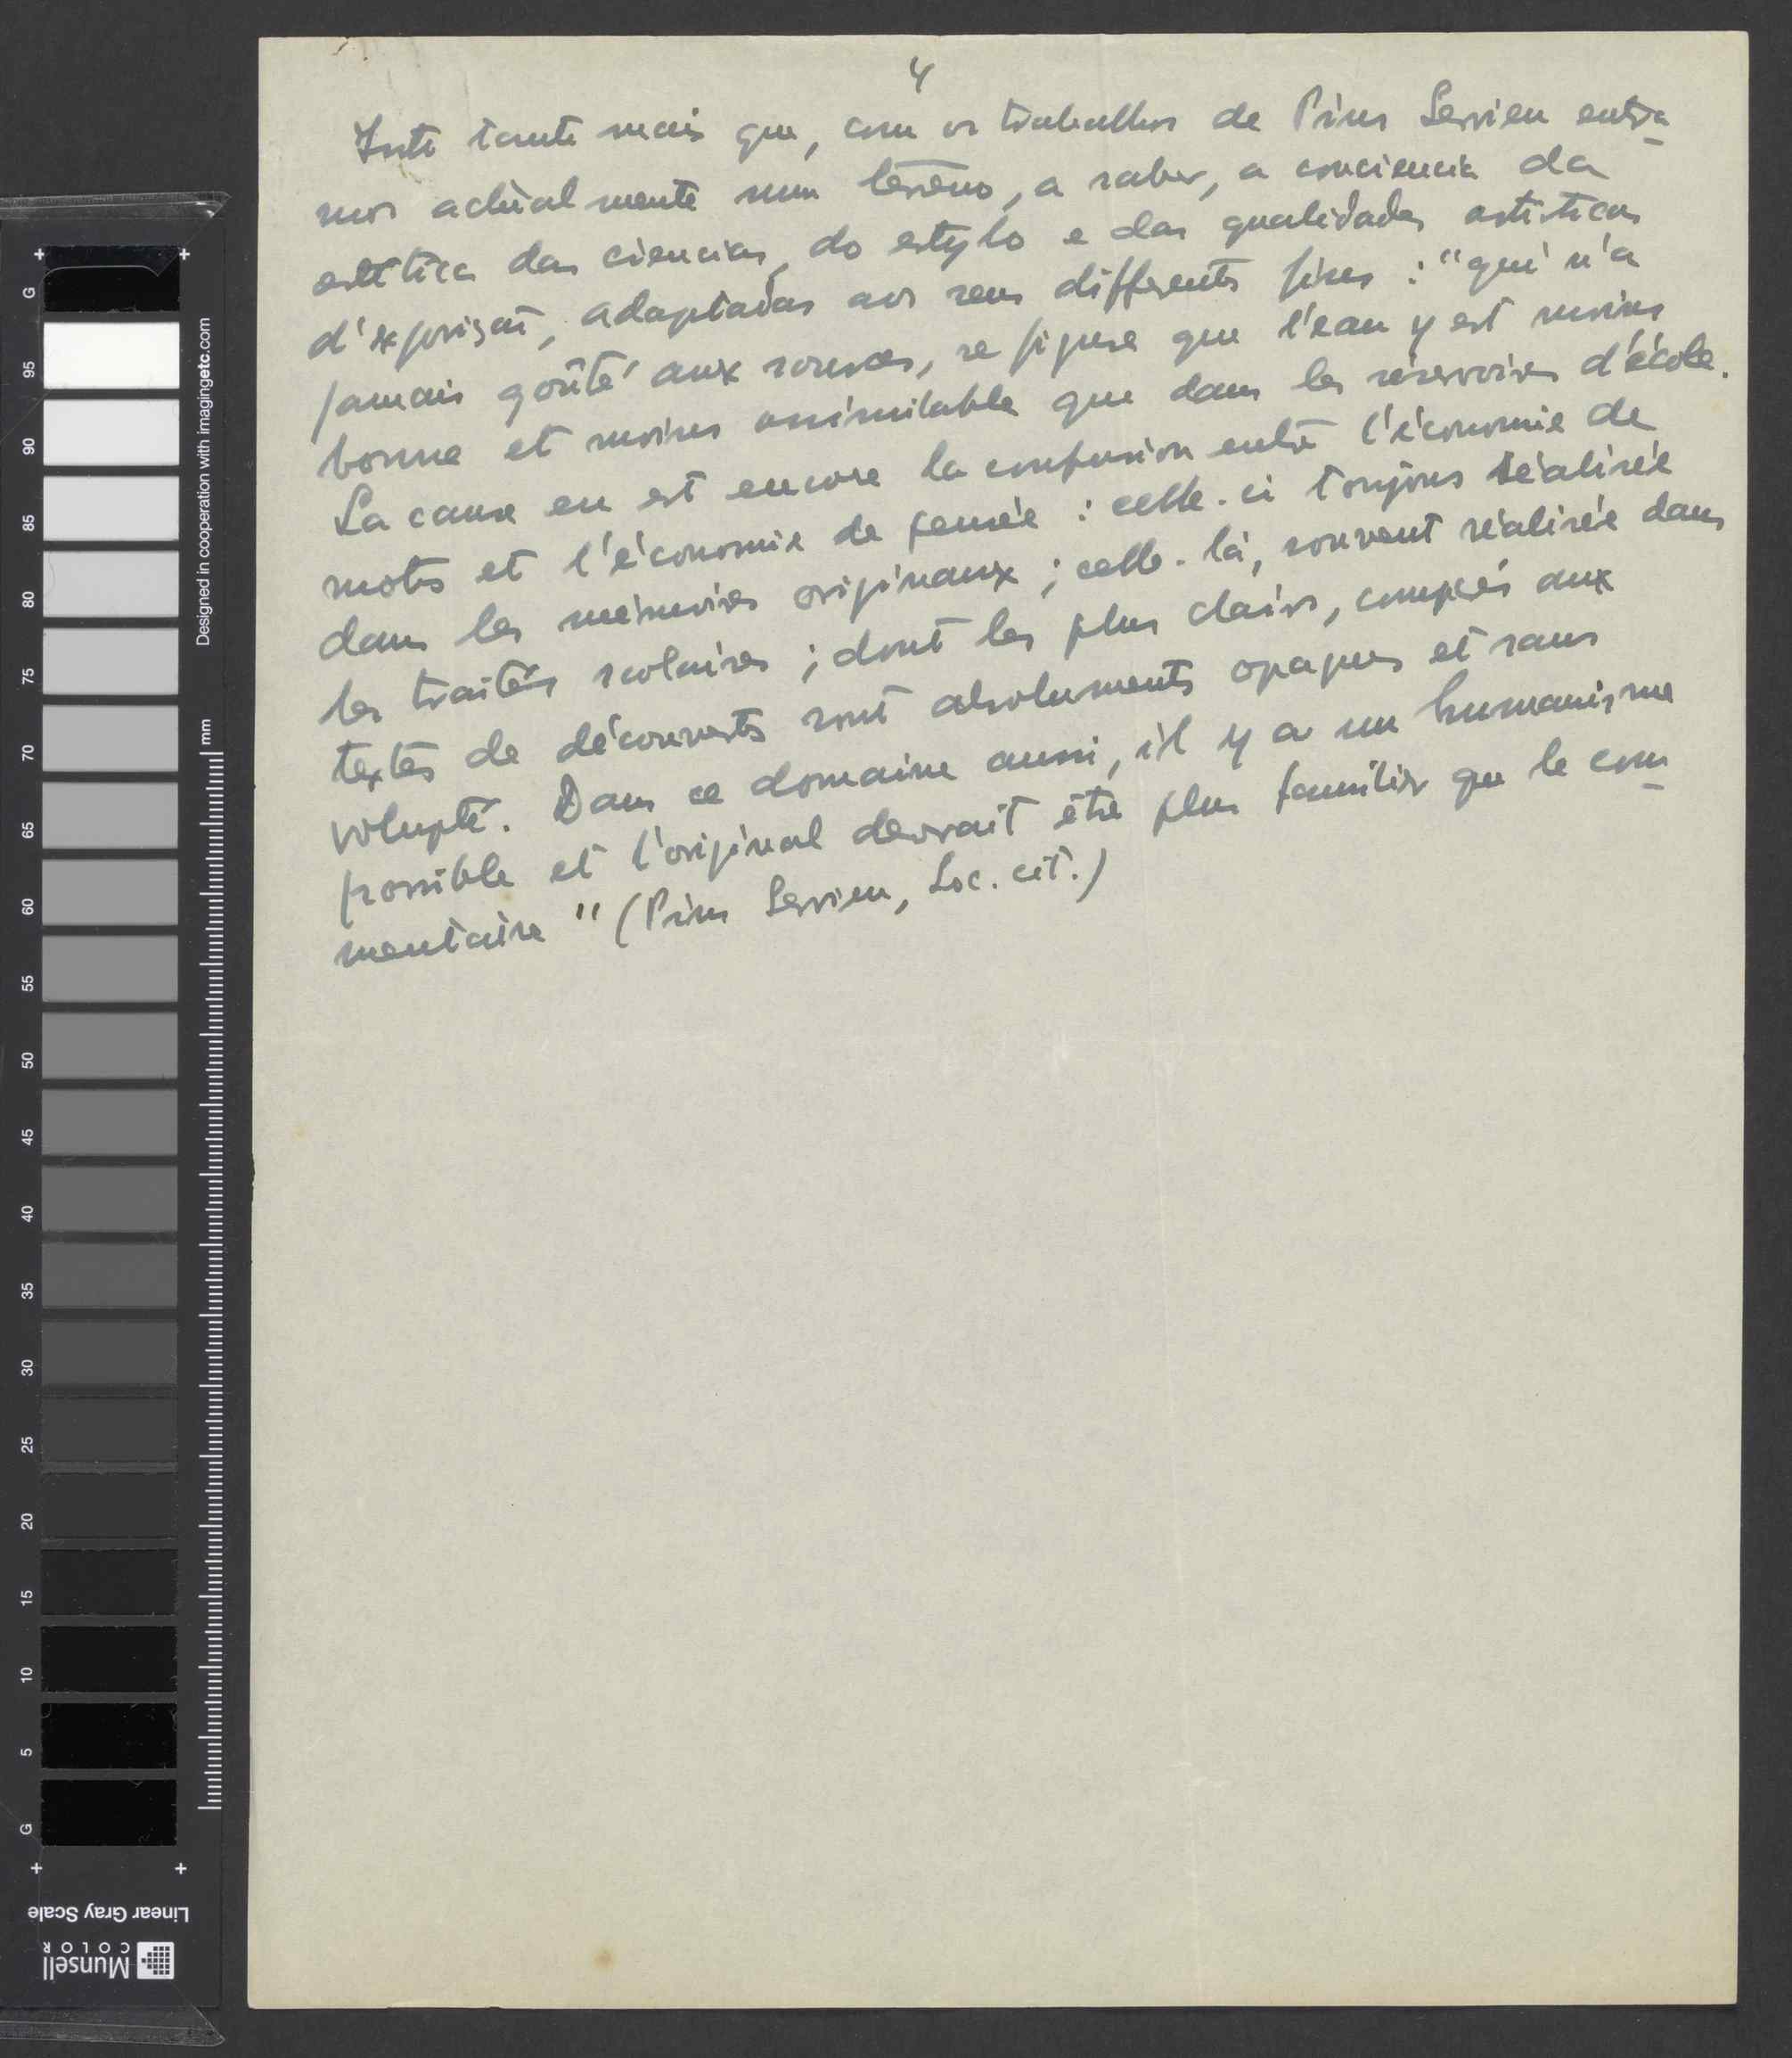 4
Isto tanto mais que, com os trabalhos de Pius Servien entra
mos actualmente num terreno, a saber, a conciencia da
estetica das ciencias, do estylo e das qualidades artisticas
d'exposiçaõ, adaptadas aos seus differents fines : "qui n'a
jamais goûté aux sources, se figure que l'eau y est moins
bonne et moins assimilable que dans les réservoirs d'école.
La cause en est encore la confusion entre l'économie de
mots et l'économie de pensée : celle-ci toujours réalisée
dans les mémoires originaux ; celle-là, souvent réalisée dans
les traités scolaires ; dont les plus clairs, comparés aux
textes de découvertes sont absoluments opaques et sans
volupté. Dans ce domaine aussi, il y a un humanisme
possible et l'original devrait être plus familier que le com
mentaire" (Pius Servien, Loc. cit.)
Designed in cooperation with imagingetc.com
mm
G
95
90
85
80
75
70
65
60
55
50
45
40
35
30
25
20
15
10
5
G
Linear Gray Scale
Munsell
COLOR